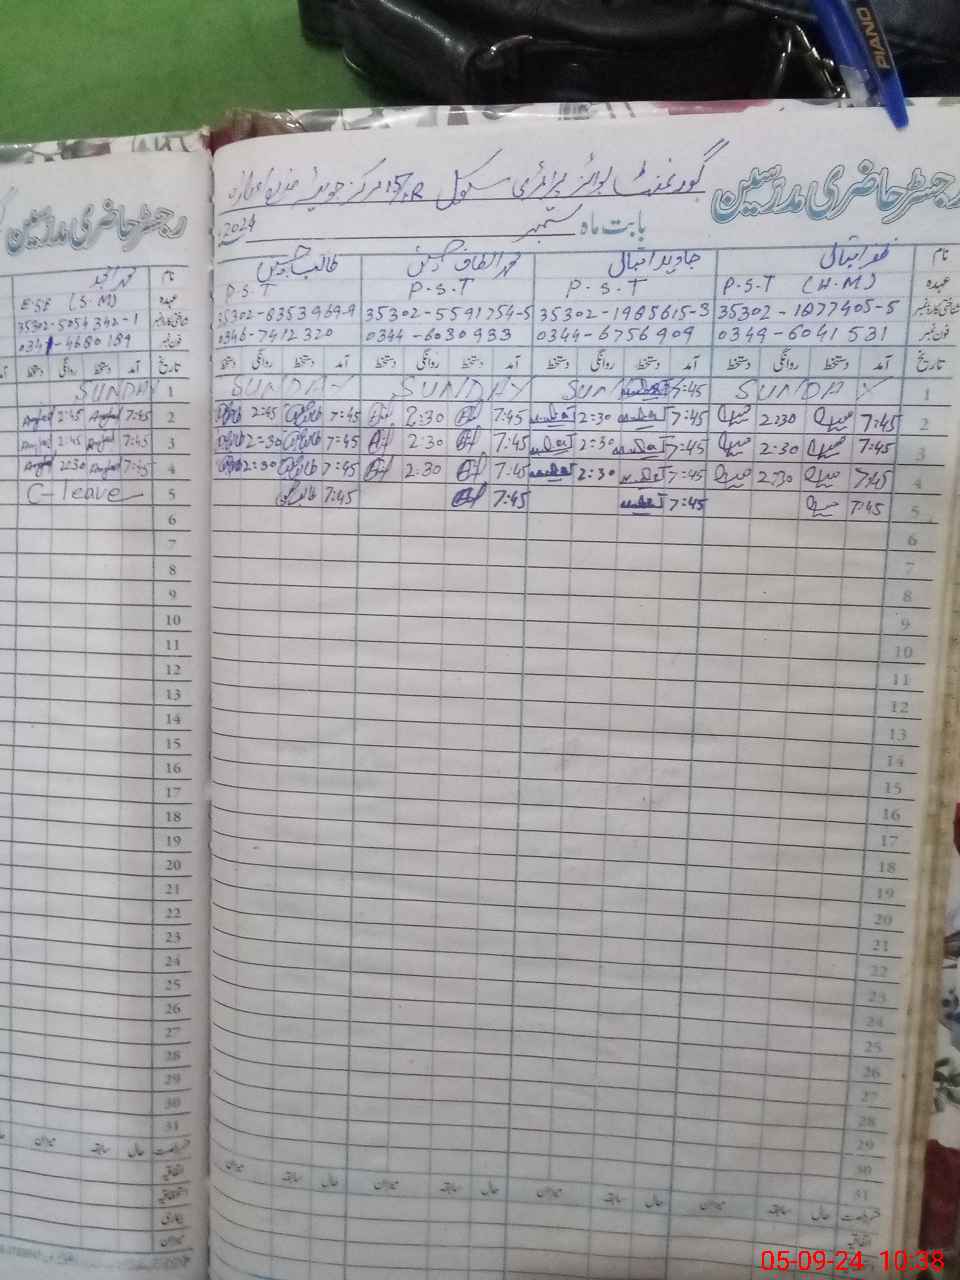 PIANO
رجسٹر حاضری مدرسین
گورنمنٹ بوائز پرائمری سکول 15/1R مرکز
بابت ماہ ستمبر 2024
نام ظفر اقبال جاوید اقبال محمد الطاف حسین طالب حسین
عہدہ P.S.T (H.M) P.S.T P.S.T P.S.T
شناختی کارڈ نمبر 35302-1877405-5 35302-1985615-3 35302-5591754-5 35302-8353969-9
فون نمبر 0349-6041531 0344-6756909 0344-6030933 0346-7412320
تاریخ آمد دستخط روانگی دستخط آمد دستخط روانگی دستخط آمد دستخط روانگی دستخط آمد دستخط روانگی دستخط
1 SUNDAY SUN 7:45 SUNDAY SUNDAY
2 7:45 2:30 7:45 2:30 7:45 2:30 7:45 2:45
3 7:45 2:30 7:45 2:30 7:45 2:30 7:45 2:30
4 7:45 2:30 7:45 2:30 7:45 2:30 7:45 2:30
5 7:45 7:45 7:45 طالب 7:45
6
7
8
9
10
11
12
13
14
15
16
17
18
19
20
21
22
23
24
25
26
27
28
29
30
31
رخصت حال سابقہ میزان حال سابقہ میزان حال سابقہ میزان حال سابقہ میزان
اتفاقیہ
رجسٹر حاضری مدرسین
نام محمد امجد
عہدہ E.S.E (S.M)
شناختی کارڈ نمبر 35302-5054342-1
فون نمبر 0341-4680189
تاریخ آمد دستخط روانگی دستخط
1 SUNDAY
2 7:45 Amjad 2:45 Amjad
3 7:45 Amjad 2:45 Amjad
4 7:45 Amjad 2:30 Amjad
5 C-leave
6
7
8
9
10
11
12
13
14
15
16
17
18
19
20
21
22
23
24
25
26
27
28
29
30
31
رخصت حال سابقہ میزان
اتفاقیہ
استحقاقیہ
بیماری
میزان
05-09-24 10:38